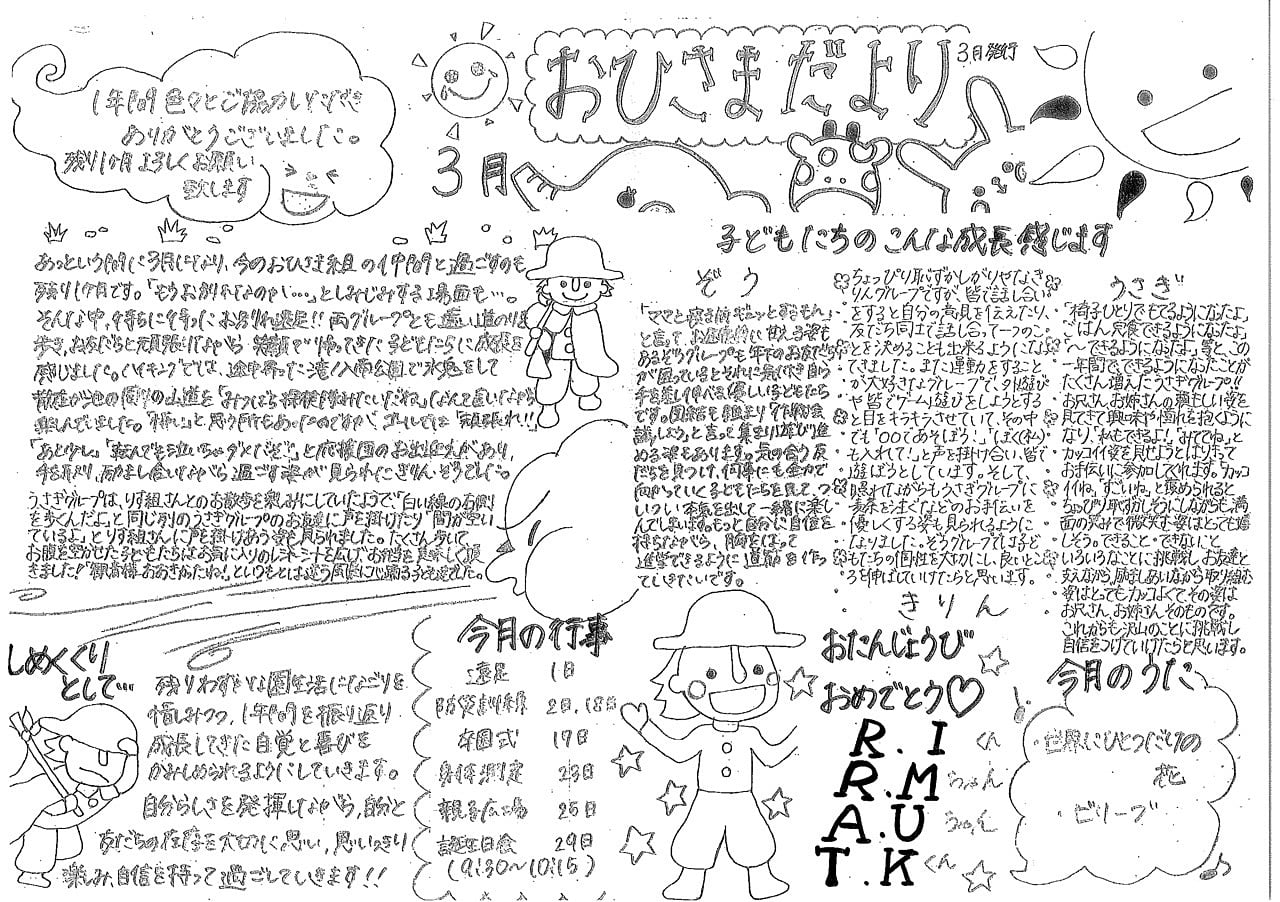 おひさまだより
3月発行
3月
1年間色々とご協力いただき
ありがとうございました。
残り1ケ月よろしくお願い
致します
あっという間に3月になり、今のおひさま組の仲間と過ごすのも
残り1ケ月です。「もうお別れなのか…」としみじみする場面も…。
そんな中、待ちに待ったお別れ遠足!! 両グループとも遠い道のりを
歩き、お友だちと頑張りながら 笑顔で帰ってきた子どもたちに成長を
感じました。ハイキングでは、途中寄った滝ノ入南公園で水分をして
の山道を「みつばち探検隊みたいだね」なんて言いながら
楽しんでました。「怖い」と思う所もあったのですが、ゴールでは「頑張れ!!
「あと少し。」「転んでも泣いちゃダメだぞ」と応援団のお出迎えがあり、
手を取り、励まし合いながら 過ごす姿が見られたきりん・ぞうでした。
うさぎグループは、りす組さんとのお散歩を楽しみにしていたようで「白い線の右側
を歩くんだよ」と同じ列のうさぎグループのお友達に声を掛けたり「間が空い
ているよ」とりす組さんに声を掛けあう姿も見られました。たくさん歩いて
お腹を空かせた子どもたちはお気に入りのレジャーシートを広げ、お弁当を美味しく頂
きました!「御馬様おおきかったね!」といつもとは違う風景に心踊る子ども達でした。
子どもたちのこんな成長感じます
ぞう
「ママと寝る前ギュッとするもん」
と言って、お昼寝前に甘える姿も
あるぞうグループも年下のお友だち
が困っているとそれに気付き自ら
手を差し伸べる優しい子どもたち
です。団結も強まり「作戦会
議しよう」と言って集まり遊びを進
める姿もあります。気の合う友
だちを見つけ、何事にも全力で
向かっていく子どもたちを見て、つ
いつい本気を出して一緒に楽し
んでしまいます。もっと自分に自信を
持ちながら、胸をはって
進学できるように道筋を作っ
ていきたいです。
ちょっぴり恥ずかしがりやなき
りんグループですが、皆で話し合い
をすると自分の意見を伝えたり、
友だち同士で話し合って一つのこ
とを決めることも出来るようになっ
てきました。また運動をすること
が大好きなグループで、外遊び
や皆でゲーム遊びをしようとする
と目をキラキラさせていて、その中
でも「〇〇であそぼう!」「ぼく(わたし)
も入れて!」と声を掛け合い、皆で
遊ぼうとしています。そして、
照れながらもうさぎグループに
麦茶を注ぐなどのお手伝いを
優しくする姿も見られるように
なりました。ぞうグループでは子ど
もたちの個性を大切にし、良いとこ
ろを伸ばしていけたらと思います。
きりん
うさぎ
「椅子しとりでもてるようになったよ」
「ごはん完食できるようになったよ」
「〜できるようになったよ」等と、この
一年間でできるようになったことが
たくさん増えたうさぎグループ!!
お兄さん、お姉さんの頼もしい姿を
見てきて興味や憧れを抱くように
なり、「私もできるよ!」「みててね」と
カッコイイ姿を見せようとはりきって
お手伝いに参加してくれます。「カッコ
イイね。すごいね。」と褒められると
ちょっぴり恥ずかしそうにしながらも、満
面の笑みで微笑む姿はとても嬉
しそう。できること・できないと
いろいろなことに挑戦し、お友達と
支えながら、励ましあいながら取り組む
姿はとってもカッコよくてその姿は
お兄さん、お姉さんそのものです。
これからも沢山のことに挑戦し
自信をつけていけたらと思います。
しめくくり
として…
残りわずかな園生活になごりを
惜しみつつ、1年間を振り返り
成長してきた自覚と喜びを
かみしめられるようにしていきます。
自分らしさを発揮しながら、自分と
友だちの存在を大切に思い、思いっきり
楽しみ、自信を持って過ごしていきます!!
今月の行事
遠足 1日
防災訓練 2日,18日
卒園式 19日
身体測定 23日
親子広場 25日
誕生日会 29日
(9:30〜10:15)
おたんじょうび
おめでとう♡
R.I くん
R.M ちゃん
A.U ちゃん
T.K くん
今月のうた
・世界にひとつだけの
花
・ビリーブ